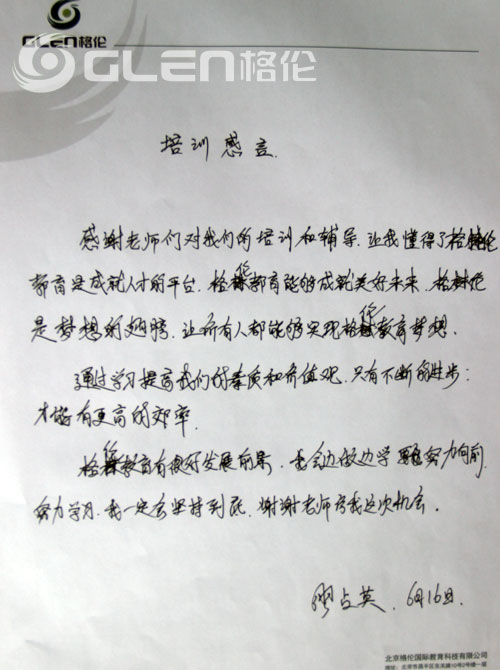 GLEN格伦
GLEN格伦
培训感言
感谢老师们对我们的培训和辅导.让我懂得了格伦
教育是成就人才的平台.格伦教育能够成就美好未来.格伦
是梦想的翅膀.让所有人都能够实现格伦教育梦想.
通过学习提高我们的素质和价值观.只有不断的进步:
才能有更高的效率.
格伦教育有很好发展前景.我会边做边学 努力向前.
努力学习.我一定会坚持到底.谢谢老师给我这次机会.
廖占英.6月16日.
北京格伦国际教育科技有限公司